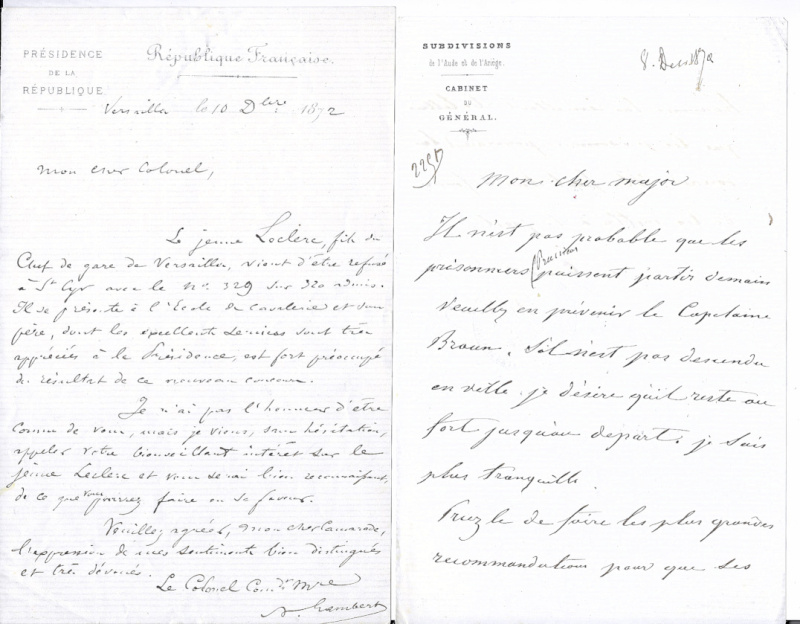 PRÉSIDENCE
DE LA
RÉPUBLIQUE
République Française.
Versailles le 10 Dbre 1872
Mon cher Colonel,
Le jeune Leclère, fils du
Chef de gare de Versailles, vient d'être refusé
à St Cyr avec le No. 329 sur 320 admis.
Il se présente à l'Ecole de cavalerie et son
père, dont les excellents services sont très
appréciés à la Présidence, est fort préoccupé
du résultat de ce nouveau concours.
Je n'ai pas l'honneur d'être
connu de vous, mais je viens, sans hésitation,
appeler votre bienveillant intérêt sur le
jeune Leclère et vous serai bien reconnaissant,
de ce que vous pourrez faire en sa faveur.
Veuillez agréer, mon cher camarade,
l'expression de mes sentiments bien distingués
et très dévoués.
Le Colonel Comdt Mre
Lambert
SUBDIVISIONS
de l'Aude et de l'Ariège.
CABINET
DU
GÉNÉRAL.
8. Dec 1872
Mon cher major
Il n'est pas probable que les
prisonniers puissent partir demain
Veuillez en prévenir le Capitaine
Braun. S'il n'est pas descendu
en ville je désire qu'il reste au
fort jusqu'au depart. je suis
plus tranquille
Priez le de faire les plus grandes
recommandations pour que ses